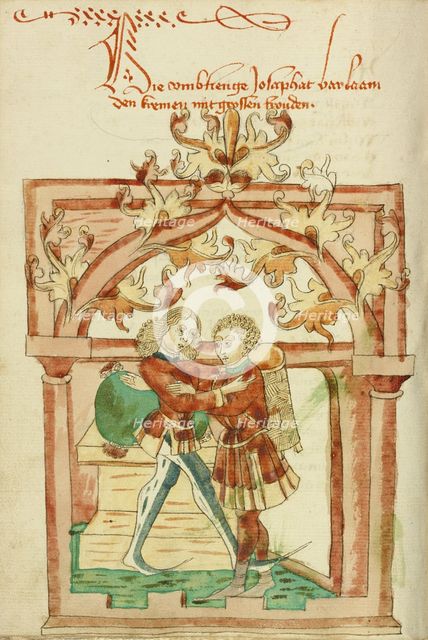 Hie vmbfienge Josaphat barlaam
den kremer mit grossen frouden.
Heritage Heritage
Heritage Heritage
Heritage Heritage
Heritage Heritage
Heritage Heritage